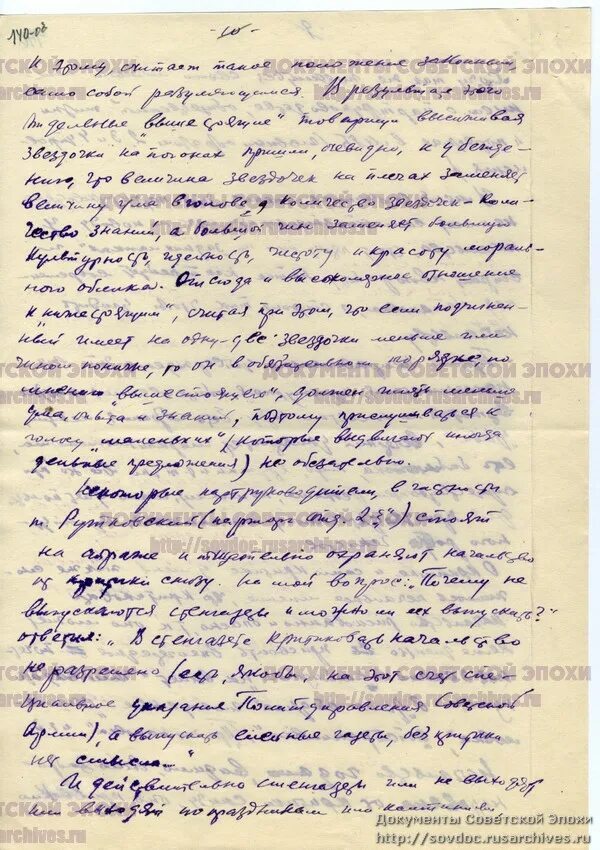 140-об
-10-
к этому, считает такое положение законным
само собой разумеющимся. В результате этого
отдельные "вышестоящие" товарищи высиживая
звездочки на погонах пришли, очевидно, к убежде-
нию, что величина звездочек на плечах заменяет
величину ума в голове, а количество звездочек - коли-
чество знаний, а большой чин заменяет большую
культурность, идейность, чистоту и красоту мораль-
ного облика. Отсюда и высокомерное отношение
к "нижестоящим", считая при этом, что если подчинен-
ный имеет на одну-две звездочки меньше или
чином пониже, то он в обязательном порядке по
мнению "вышестоящего", должен иметь меньше
ума, опыта и знаний, поэтому прислушиваться к
голосу "маленьких", (которые выдвигают иногда
дельные предложения) не обязательно.
Некоторые партруководители, в частности
т. Рутковский (парторг отд.) стоят
на страже и тщательно охраняют начальство
от критики снизу. На мой вопрос: "Почему не
выпускаются стенгазеты и можно ли их выпускать?"
ответил: "В стенгазете критиковать начальство
не разрешено (есть, якобы, на этот счет спе-
циальное указание Политуправления Советской
Армии), а выпускать стенные газеты, без критики
нет смысла..."
И действительно стенгазеты или не выходят
или выходят по праздникам или
ДОКУМЕНТЫ СОВЕТСКОЙ ЭПОХИ
http://sovdoc.rusarchives.ru
Документы Советской Эпохи
http://sovdoc.rusarchives.ru